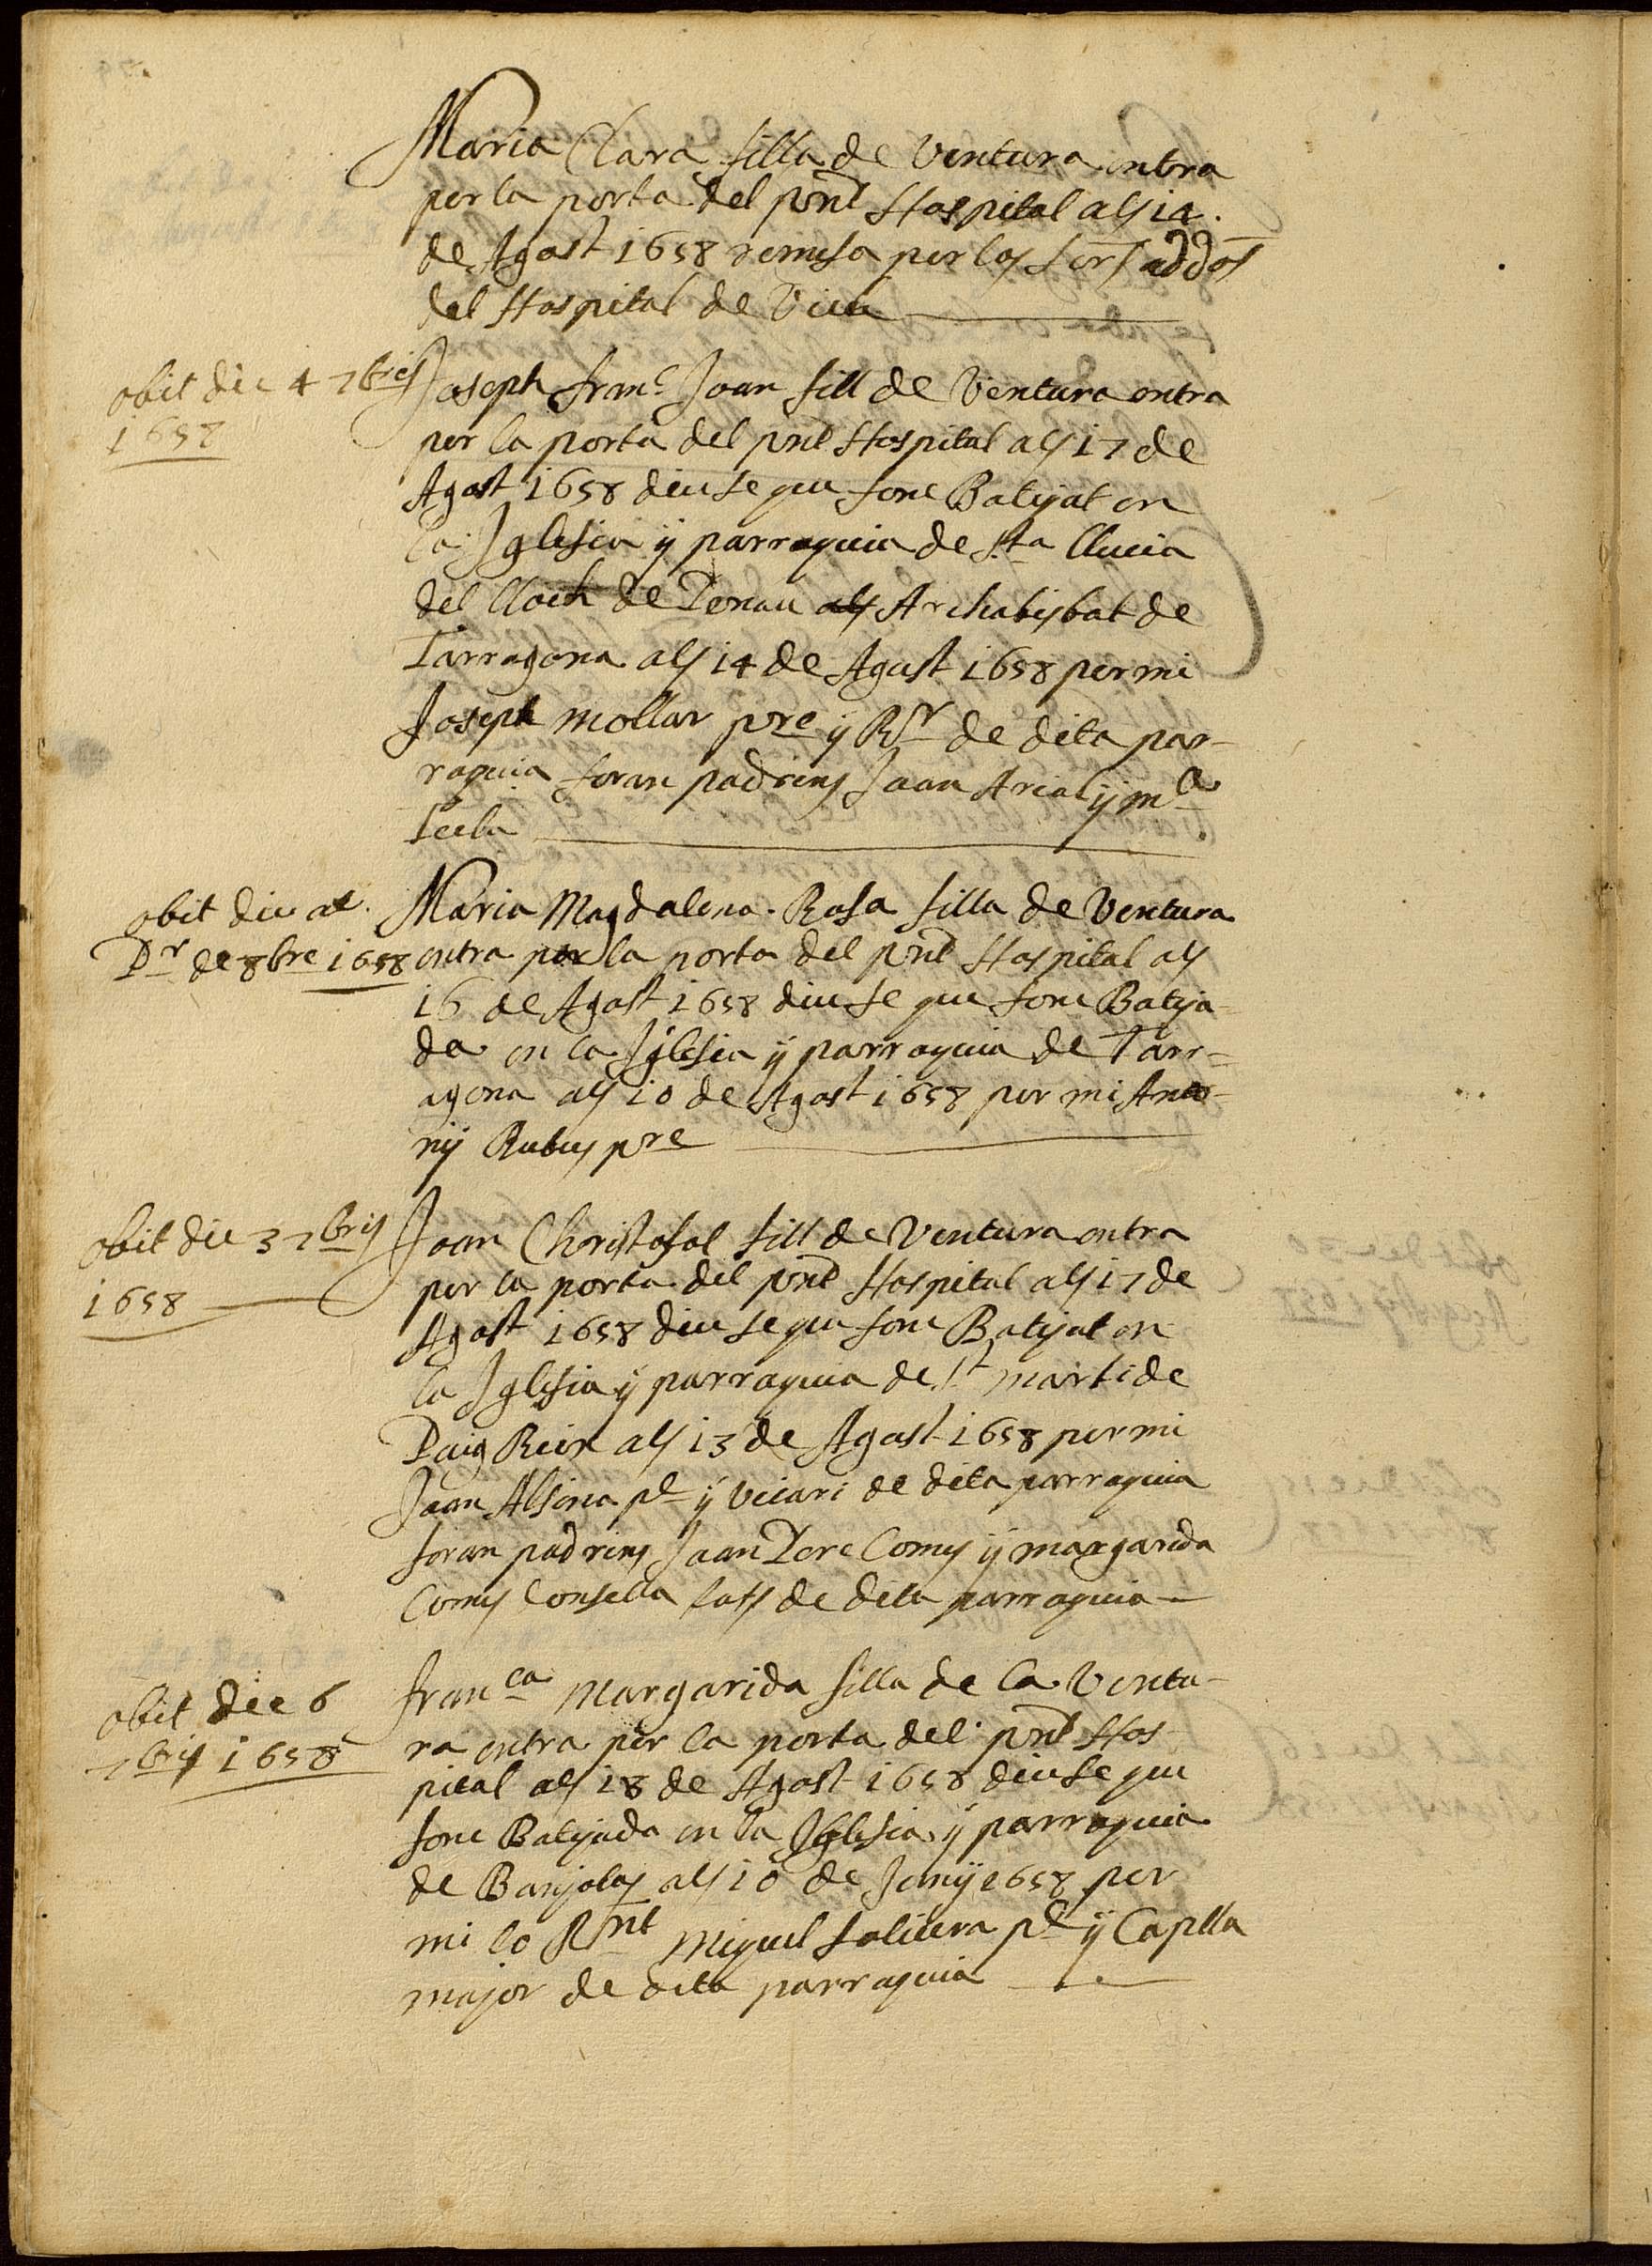 Maria Clara filla de Ventura entra
per la porta del pnt Hospital als 14.
de Agost 1658 remesa per los Sors addors
del Hospital de Vich
obit die 4 7bris
1658
Joseph franc Joan fill de Ventura entra
per la porta del pnt Hospital als 17 de
Agost 1658 diuse que fonc Batejat en
la Iglesia y parroquia de Sta Llucia
del lloch de als Archabisbat de
Tarragona als 14 de Agost 1658 per mi
Joseph mollar pre y Rr de dita par-
roquia foran padrins Joan Arial y ma
Tecla
obit die al
Pr de 8bre 1658
Maria Magdalena Rosa filla de Ventura
entra per la porta del pnt Hospital als
16 de Agost 1658 diuse que fonc Bateja-
da en la Iglesia y parroquia de Tarr-
agona als 10 de Agost 1658 per mi Anto-
ny Rubus pre
obit die 3 7bris
1658
Joan Christofol fill de Ventura entra
per la porta del pnt Hospital als 17 de
Agost 1658 diuse que fonc Batejat en
la Iglesia y parroquia de St marti de
Puig Reix als 13 de Agost 1658 per mi
Joan Alsina pe y Vicari de dita parroquia
foran padrins Joan Pere Comes y margarida
Comes Consella tots de dita parroquia
obit die 6
7bris 1658
franca Margarida filla de la Ventu-
ra entra per la porta del pnt Hos-
pital als 18 de Agost 1658 diuse que
fonc Batejada en la Iglesia y parroquia
de Banyolas als 10 de Juny 1658 per
mi lo Rnt Miquel pe y Caplla
major de dita parroquia